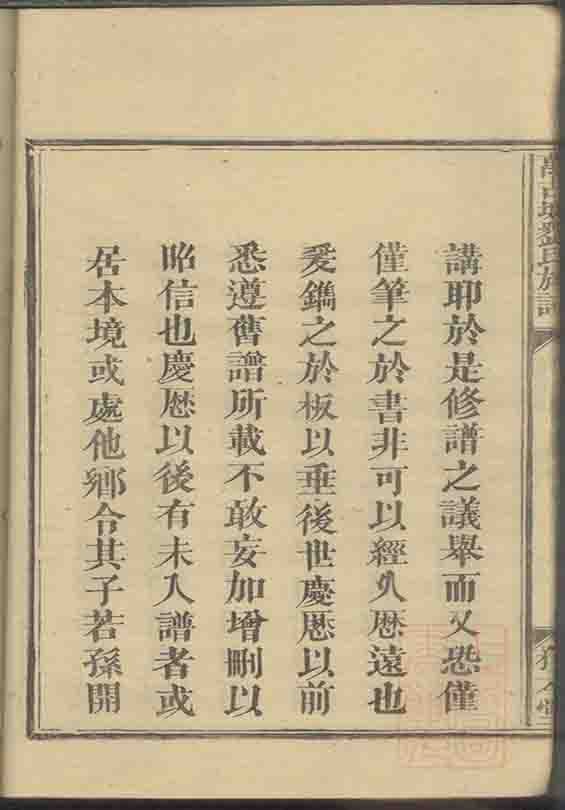 講耶於是修譜之議舉而又恐僅
僅筆之於書非可以經久厯遠也
爰鐫之於板以垂後世慶厯以前
悉遵舊譜所載不敢妄加增刪以
昭信也慶厯以後有未入譜者或
居本境或處他鄉合其子若孫開